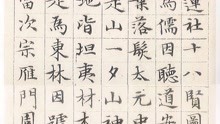 蓮社十八賢圖
為儒因聽道安
落髮太元中
是山一夕山神
詣坦夷材木
是為東林因號
雷次宗雁門周